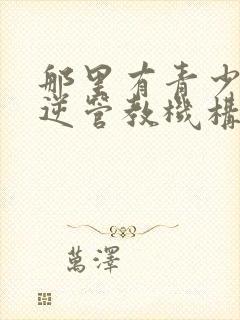 那里有青少
逆管教機構
萬澤